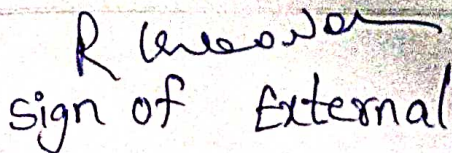 R
sign of External